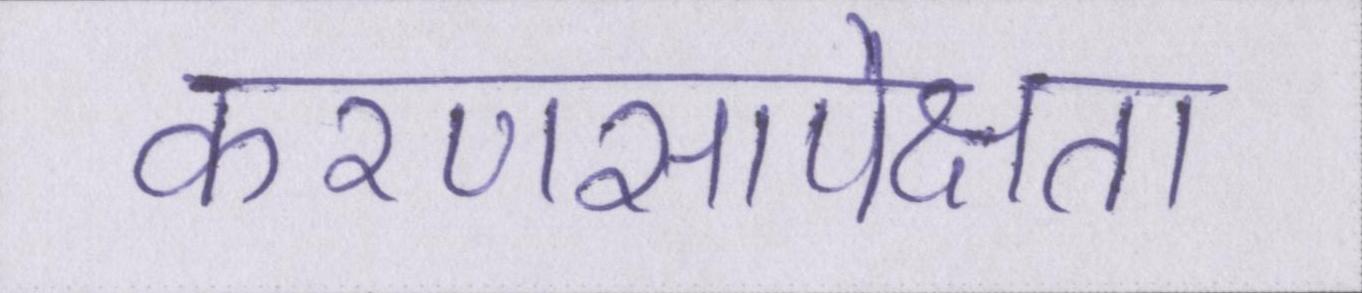 करणसापेक्षता